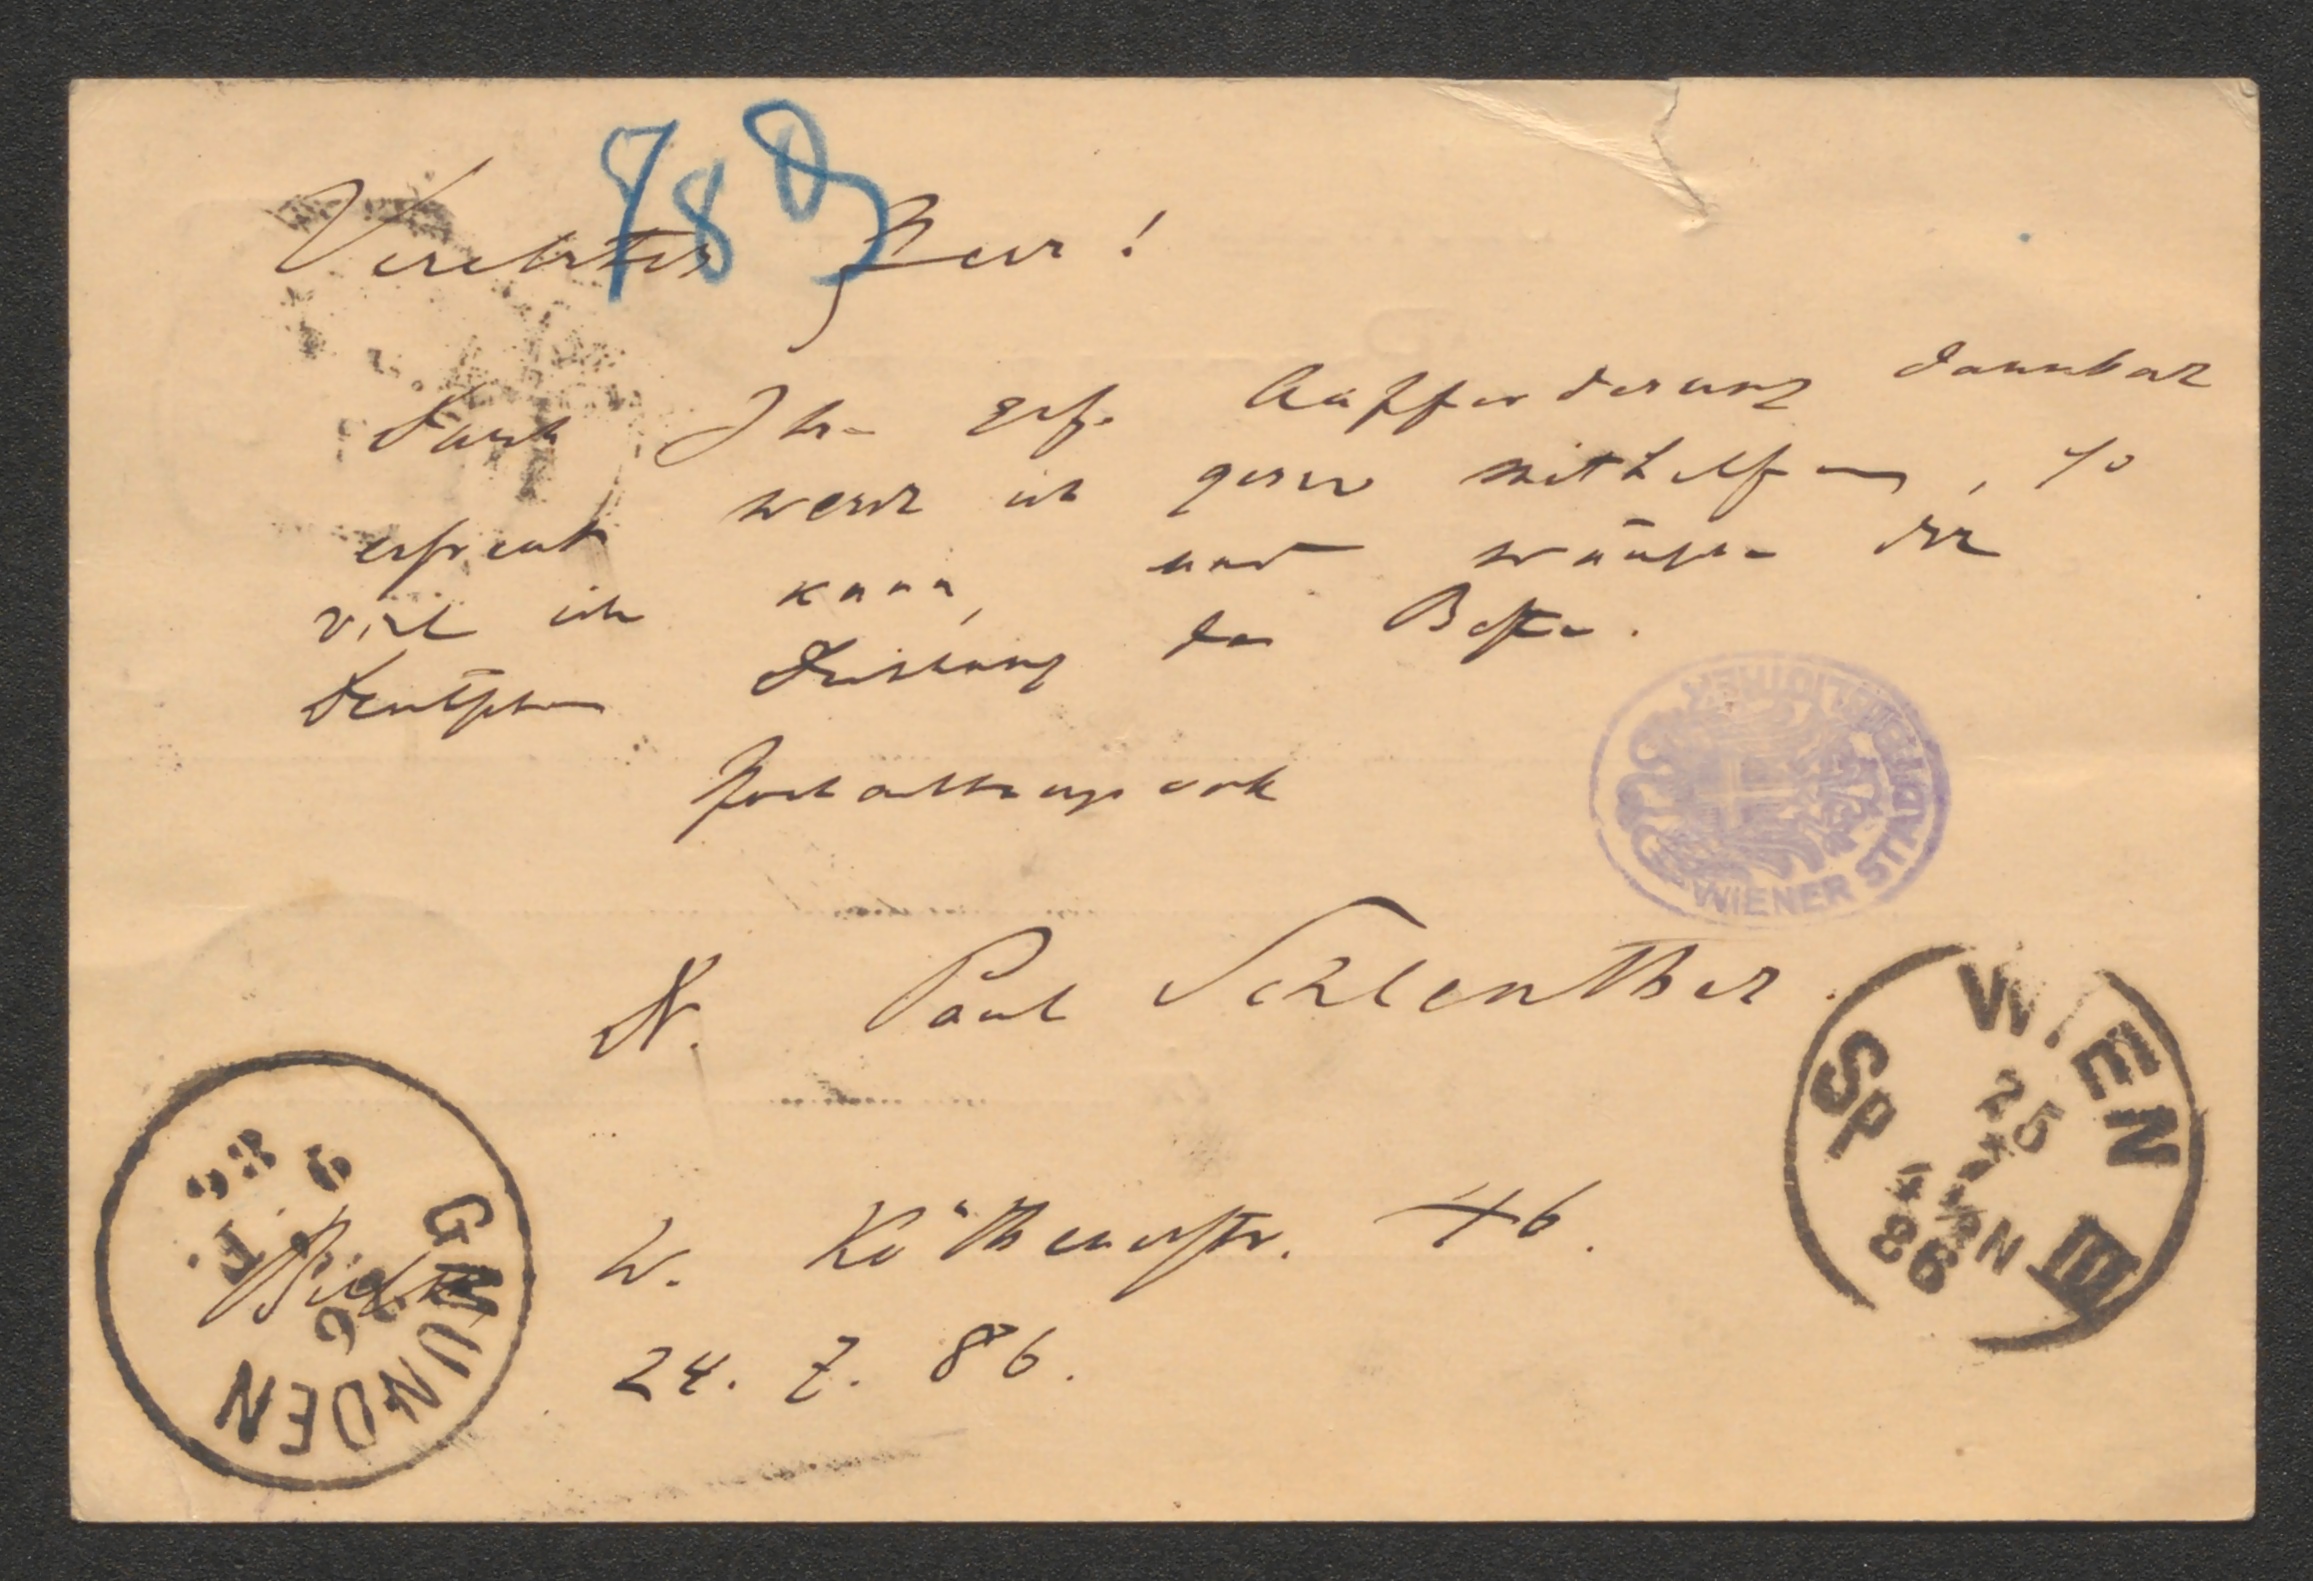 789
Verehrter Herr!
Durch Ihre gefl. Aufforderung dankbar
erfreut werde ich gerne mithelfen, so
viel ich kann, und wünsche der
Deutschen Dichtung das Beste.
Hochachtungsvoll
Dr. Paul Schlenther.
Berlin W. Köthenerstr. 46.
24. 7. 86.
WIENER STADTBIBLIOTHEK
GMUNDEN
WIEN III
25
7
86